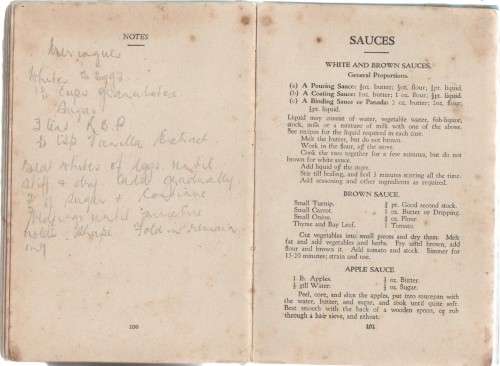 NOTES
Meringues
Whites 3 Eggs
1½ Cups granulated
Sugar
3 teas
½ tsp Vanilla Extract
Beat whites of Eggs until
stiff & dry Add gradually
of sugar & Continue
until mixture
holds Shape Fold in remain
ing
100
SAUCES
WHITE AND BROWN SAUCES.
General Proportions.
(a) A Pouring Sauce: ½oz. butter; ½oz. flour; ½pt. liquid
(b) A Coating Sauce: 1oz. butter; 1 oz. flour; ½pt. liquid.
(c) A Binding Sauce or Panada: 2 oz. butter; 2oz. flour;
½pt. liquid.
Liquid may consist of water, vegetable water, fish-liquor,
stock, milk or a mixture of milk with one of the above.
See recipes for the liquid required in each case.
Melt the butter, but do not brown.
Work in the flour, off the stove.
Cook the roux together for a few minutes, but do not
brown for white sauce.
Add liquid off the stove.
Stir till boiling, and boil 3 minutes stirring all the time.
Add seasoning and other ingredients as required.
BROWN SAUCE.
Small Turnip. pt. Good second stock.
Small Carrot. 1 oz. Butter or Dripping.
Small Onion. oz. Flour.
Thyme and Bay Leaf. 1 Tomato.
Cut vegetables into small pieces and dry them. Melt
fat and add vegetables and herbs. Fry until brown, add
flour and brown it. Add tomato and stock. Simmer for
15-20 minutes; strain and use.
APPLE SAUCE
1 lb. Apples. ½ oz. Butter.
½ gill Water. ½ oz. Sugar.
Peel, core, and slice the apples, put into saucepan with
the water, butter, and sugar, and cook until quite soft.
Beat smooth with the back of a wooden spoon, or rub
through a hair sieve, and reheat.
101